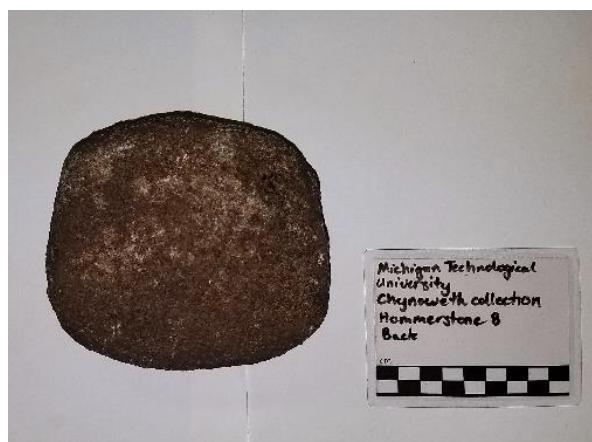 Michigan Technological
University
Chynoweth collection
Hammerstone 8
Back
cm